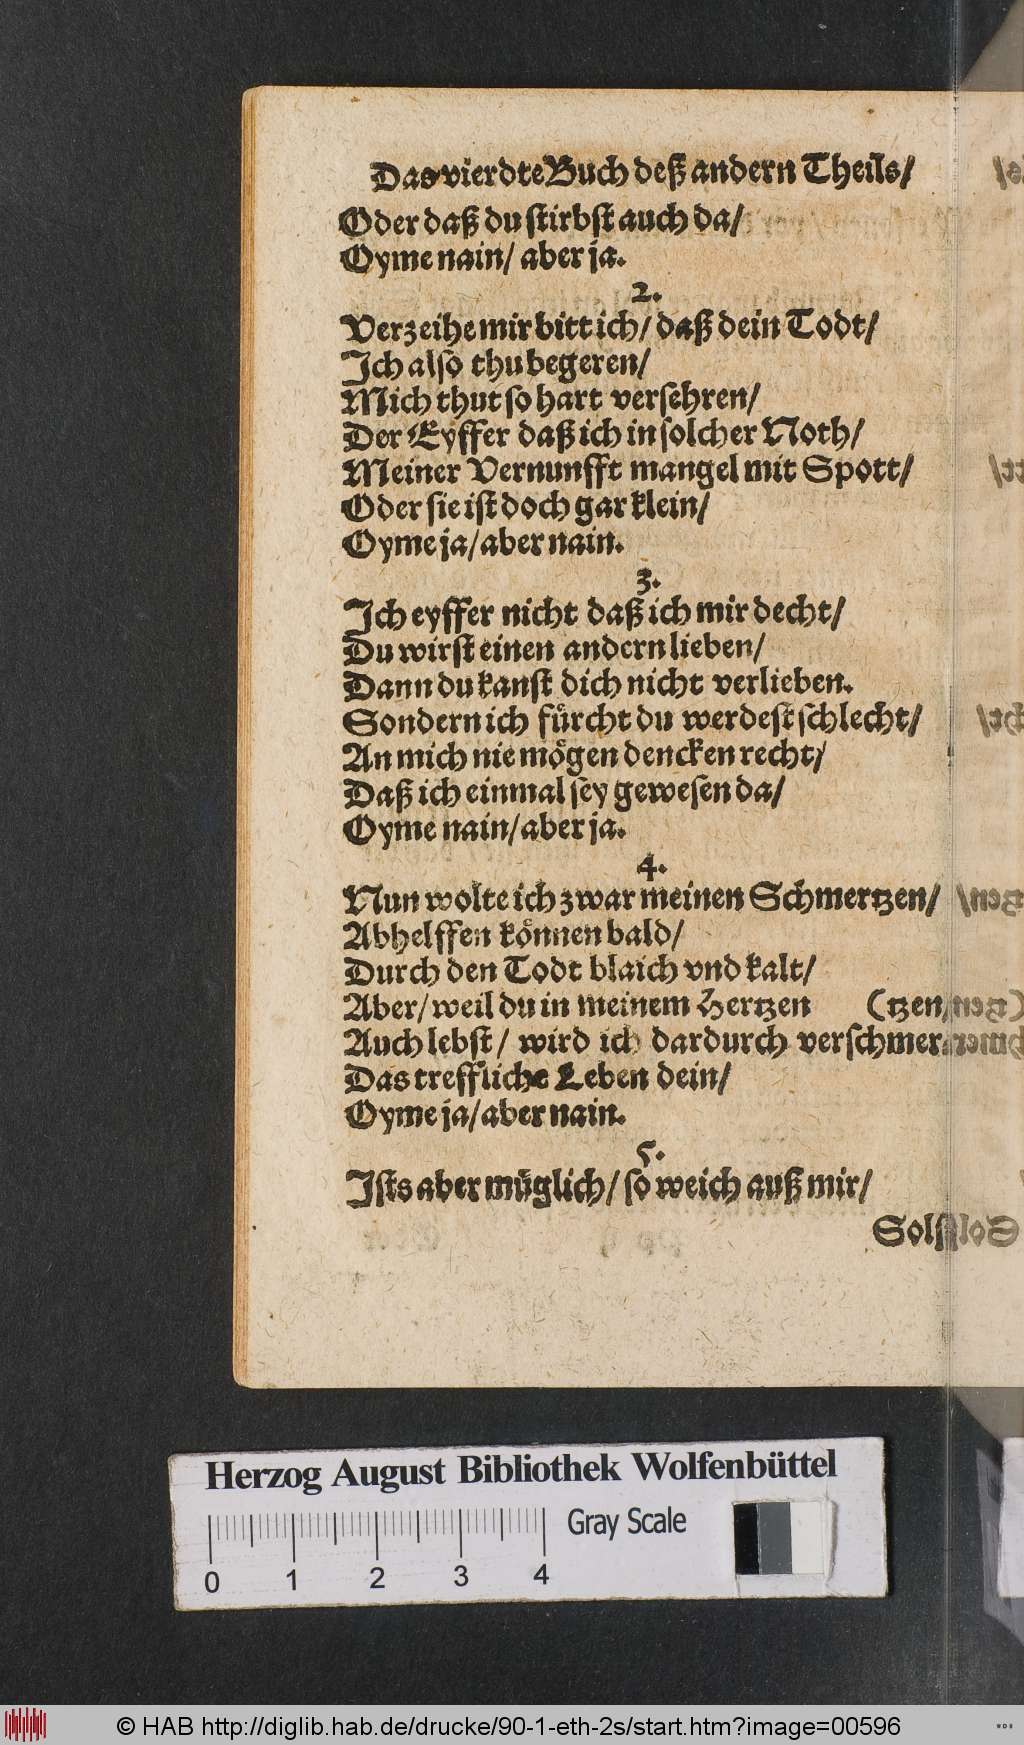 Das vierdte Buch deß andern Theils/
Oder daß du stirbst auch da/
Oyme nain/ aber ja.
2.
Verzeihe mir bitt ich/ daß dein Todt/
Ich also thu begeren/
Mich thut so hart versehren/
Der Eyffer daß ich in solcher Noth/
Meiner Vernunfft mangel mit Spott/
Oder sie ist doch gar klein/
Oyme ja/ aber nain.
3.
Ich eyffer nicht daß ich mir decht/
Du wirst einen andern lieben/
Dann du kanst dich nicht verlieben.
Sondern ich fürcht du werdest schlecht/
An mich nie mögen dencken recht/
Daß ich einmal sey gewesen da/
Oyme nain/ aber ja.
4.
Nun wolte ich zwar meinen Schmertzen/
Abhelffen können bald/
Durch den Todt blaich vnd kalt/
Aber/ weil du in meinem Hertzen (tzen/
Auch lebst/ wird ich dardurch verschmer
Das treffliche Leben dein/
Oyme ja/ aber nain.
5.
Ists aber müglich/ so weich auß mir/
Sol
Herzog August Bibliothek Wolfenbüttel
Gray Scale
0 1 2 3 4
© HAB http://diglib.hab.de/drucke/90-1-eth-2s/start.htm?image=00596